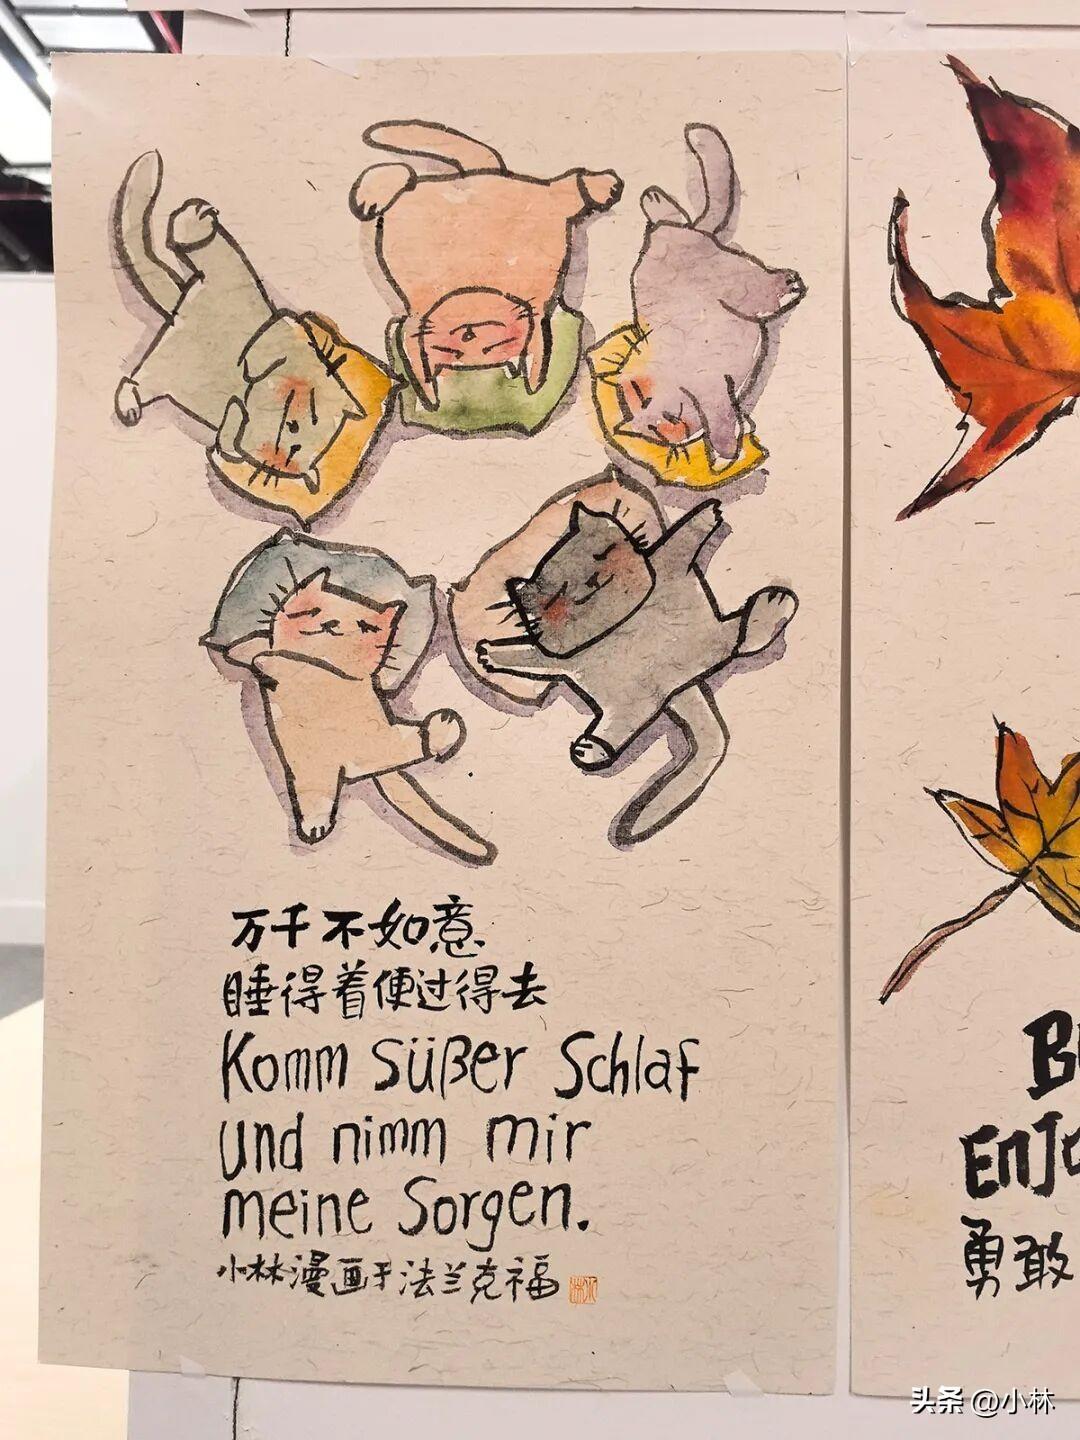 万千不如意
睡得着便过得去
Komm süßer Schlaf
und nimm mir
meine Sorgen.
小林漫画于法兰克福
EnJo
勇敢
头条 @小林